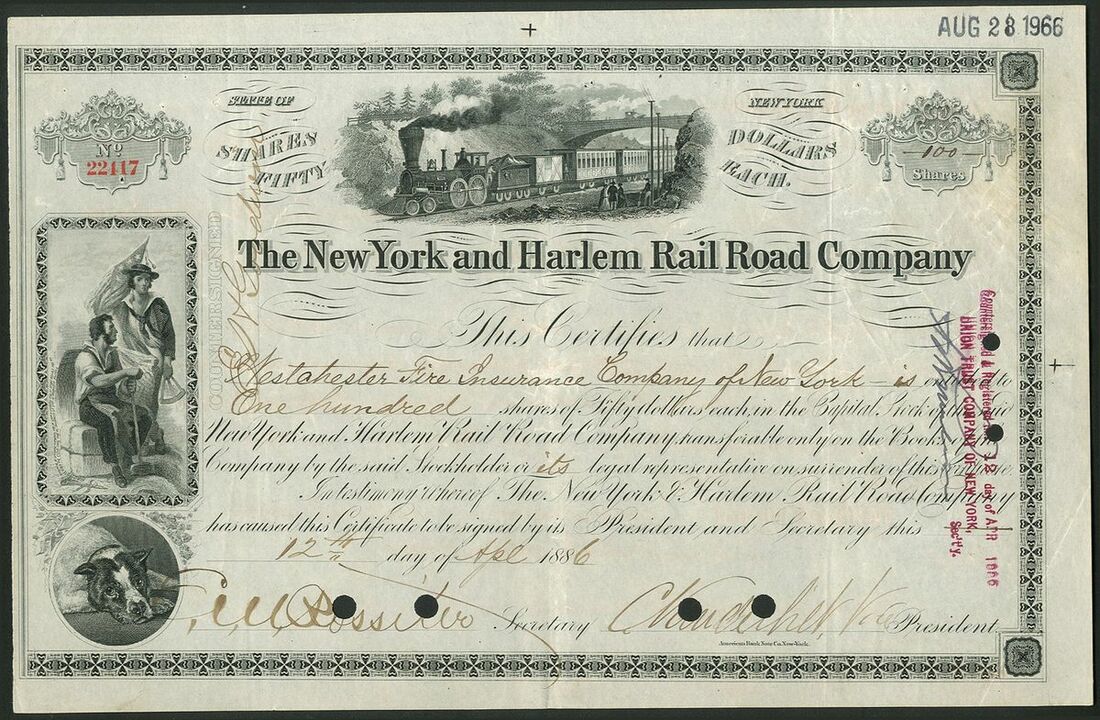 AUG 28 1966
STATE OF NEW YORK
No 22417
SHARES FIFTY DOLLARS EACH.
100 Shares
The New York and Harlem Rail Road Company
COUNTERSIGNED
This Certifies that
Westchester Fire Insurance Company of New York – is entitled to
One hundred shares of Fifty dollars each, in the Capital Stock of
New York and Harlem Rail Road Company, transferable only on the Books
Company by the said Stockholder or its legal representative on surrender of this
In testimony whereof The New York & Harlem Rail Road Company
has caused this Certificate to be signed by its President and Secretary this
12th day of Apl 1886
Secretary
C Vanderbilt Vice President
American Bank Note Co. New-York.
Countersigned & Registered
12 day of APR 1886
UNION TRUST COMPANY OF NEW YORK,
Sect'y.